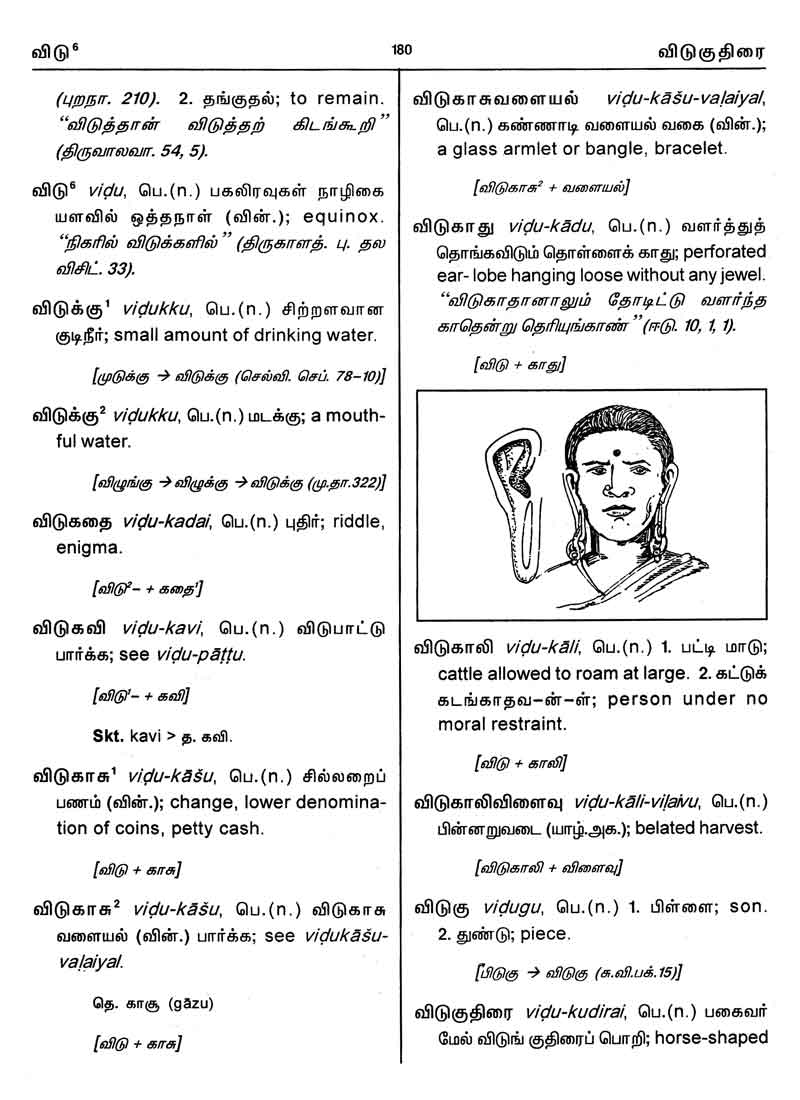 விடு⁶
180
விடுகுதிரை
(புறநா. 210). 2. தங்குதல்; to remain.
“விடுத்தான் விடுத்தற் கிடங்கூறி”
(திருவாலவா. 54, 5).
விடு⁶ viḍu, பெ.(n.) பகலிரவுகள் நாழிகை
யளவில் ஒத்தநாள் (வின்.); equinox.
“நிகரில் விடுக்களில்” (திருகாளத். பு. தல
விசிட். 33).
விடுக்கு¹ viḍukku, பெ.(n.) சிற்றளவான
குடிநீர்; small amount of drinking water.
[முடுக்கு → விடுக்கு (செல்வி. செப். 78–10)]
விடுக்கு² viḍukku, பெ.(n.) மடக்கு; a mouth-
ful water.
[விழுங்கு → விழுக்கு → விடுக்கு (மு.தா.322)]
விடுகதை viḍu-kadai, பெ.(n.) புதிர்; riddle,
enigma.
[விடு²– + கதை¹]
விடுகவி viḍu-kavi, பெ.(n.) விடுபாட்டு
பார்க்க; see viḍu-pāṭṭu.
[விடு¹– + கவி]
Skt. kavi > த. கவி.
விடுகாசு¹ viḍu-kāšu, பெ.(n.) சில்லறைப்
பணம் (வின்.); change, lower denomina-
tion of coins, petty cash.
[விடு + காசு]
விடுகாசு² viḍu-kāšu, பெ.(n.) விடுகாசு
வளையல் (வின்.) பார்க்க; see viḍukāšu-
vaḷaiyal.
தெ. காசூ (gāzu)
[விடு + காசு]
விடுகாசுவளையல் viḍu-kāšu-vaḷaiyal,
பெ.(n.) கண்ணாடி வளையல் வகை (வின்.);
a glass armlet or bangle, bracelet.
[விடுகாசு² + வளையல்]
விடுகாது viḍu-kādu, பெ.(n.) வளர்த்துத்
தொங்கவிடும் தொள்ளைக் காது; perforated
ear- lobe hanging loose without any jewel.
“விடுகாதானாலும் தோடிட்டு வளர்ந்த
காதென்று தெரியுங்காண்”(ஈடு. 10, 1, 1).
[விடு + காது]
விடுகாலி viḍu-kāli, பெ.(n.) 1. பட்டி மாடு;
cattle allowed to roam at large. 2. கட்டுக்
கடங்காதவ–ன்–ள்; person under no
moral restraint.
[விடு + காலி]
விடுகாலிவிளைவு viḍu-kāli-viḷaivu, பெ.(n.)
பின்னறுவடை (யாழ்.அக.); belated harvest.
[விடுகாலி + விளைவு]
விடுகு viḍugu, பெ.(n.) 1. பிள்ளை; son.
2. துண்டு; piece.
[பிடுகு → விடுகு (சு.வி.பக்.15)]
விடுகுதிரை viḍu-kudirai, பெ.(n.) பகைவர்
மேல் விடுங் குதிரைப் பொறி; horse-shaped